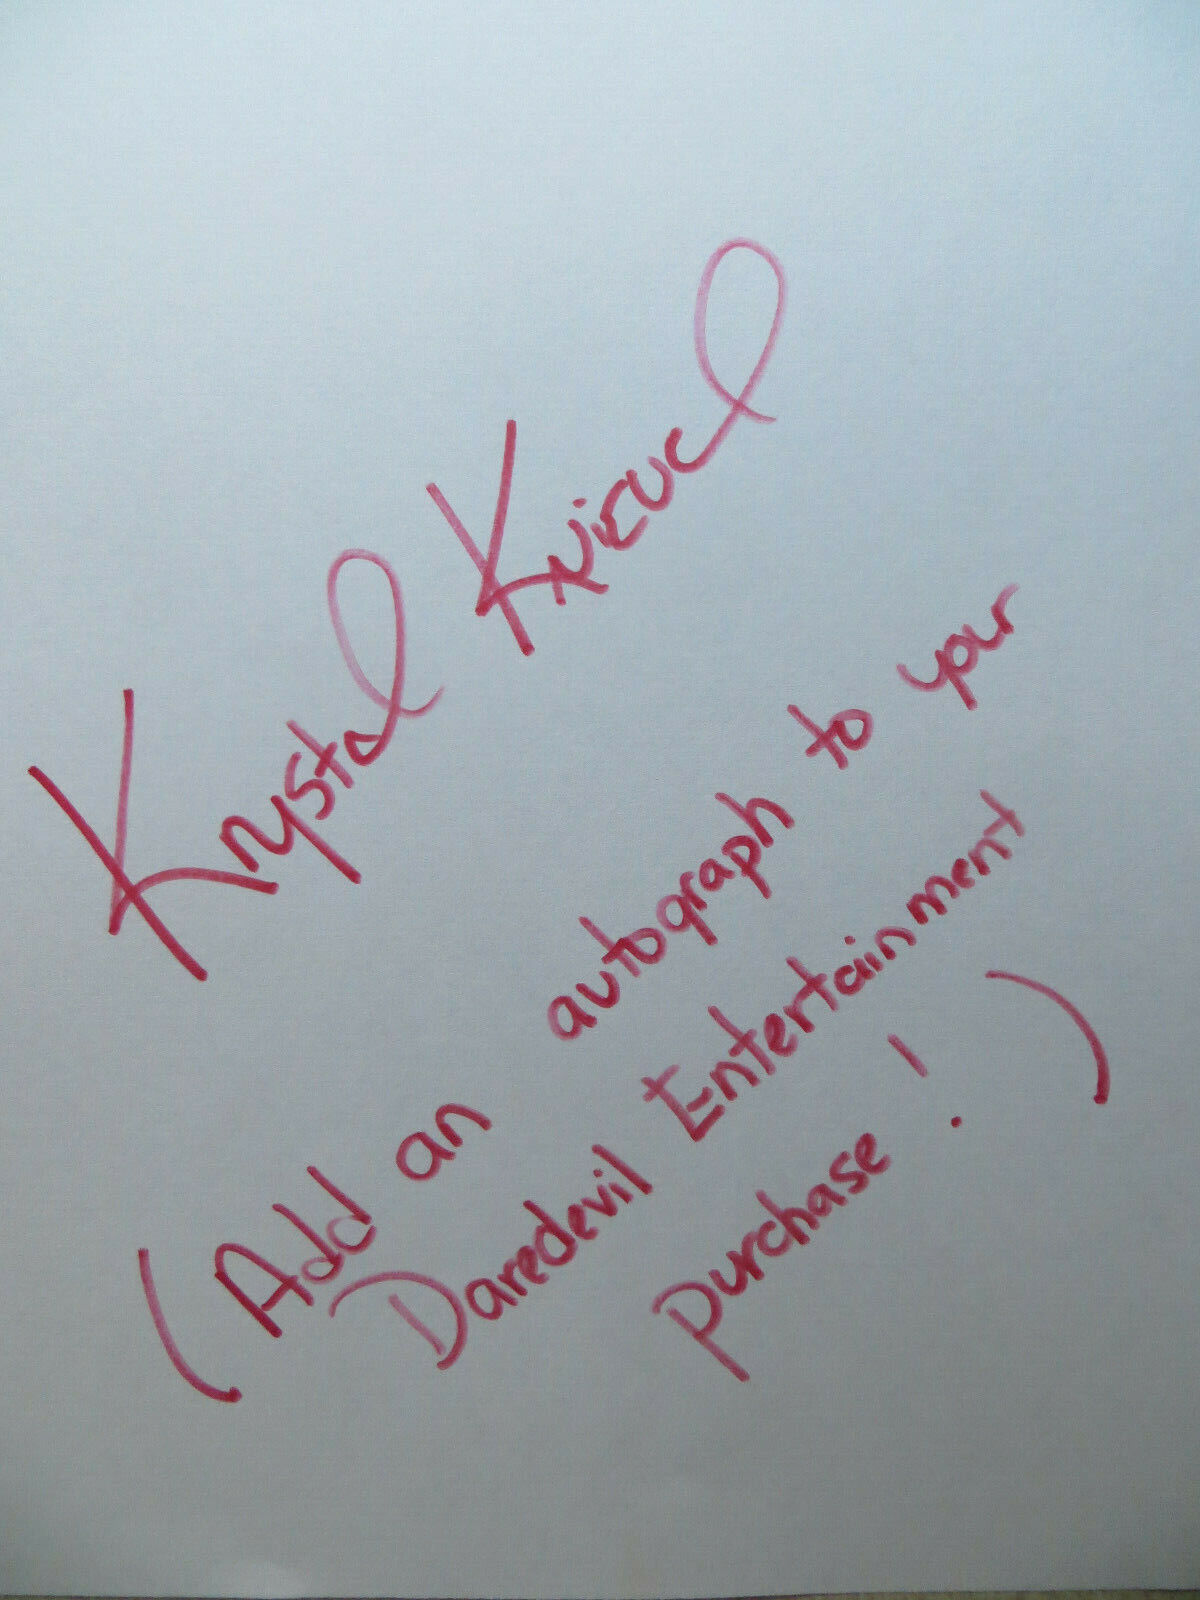 Krystal Knievel
(Add an autograph to your
Daredevil Entertainment
purchase!)